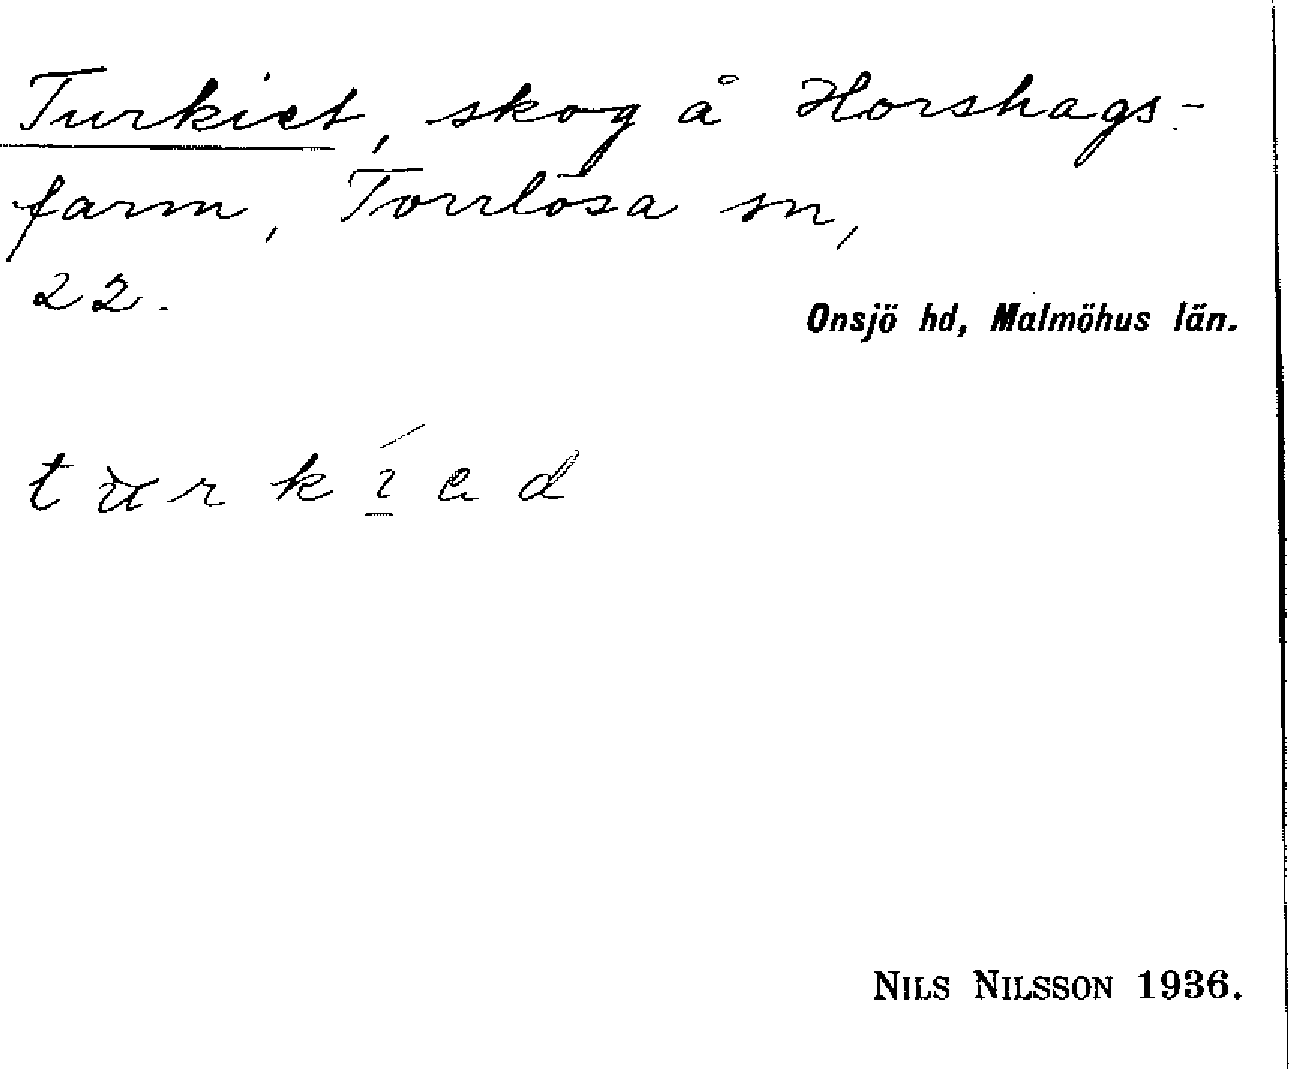 Turkiet, skog å Horshags-
farm, Torrlösa sn,
22.
Onsjö hd, Malmöhus län.
NILS NILSSON 1936.